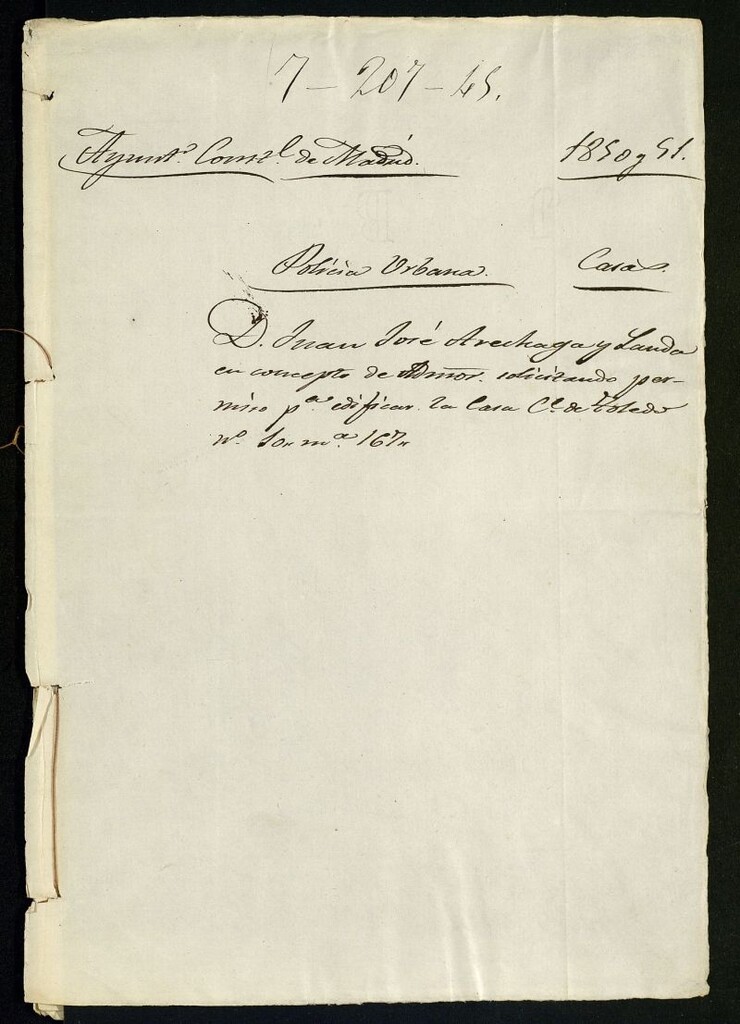 7 – 207 – 45.
Ayunt.º Const.l de Madrid. 1850 y 51.
Policia Urbana. Casas.
D. Juan José Arechaga y Landa
en concepto de Admor. solicitando per-
miso p.a edificar la Casa C.e de Toledo
n.º 10 m.a 167